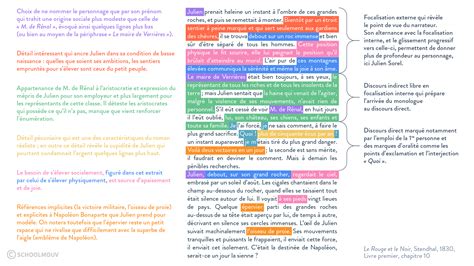 Choix de ne nommer le personnage que par son prénom,
qui trahit une origine sociale plus modeste que celle de
« M. de Rênal », évoqué ainsi quelques lignes plus bas
(ou bien au moyen de la périphrase « Le maire de Verrières »).
Détail intéressant qui ancre Julien dans sa condition de basse
naissance : quelles que soient ses ambitions, les sentiers
empruntés pour s'élever sont ceux du petit peuple.
Appartenance de M. de Rênal à l'aristocratie et expression du
mépris de Julien pour son employeur et plus largement pour
les représentants de cette classe. Il déteste les aristocrates
qui possède ce qu'il n'a pas, manque que vient renforcer
l'énumération.
Détail précieux qui est une des caractéristiques du roman
réaliste : on notera ce détail révèle la cupidité de Julien qui
pourtant vilipendait l'argent quelques lignes plus haut.
Le besoin de s'élever socialement, figuré dans cet extrait
par celui de s'élever physiquement, est source d'apaisement
et de joie.
Références implicites (la victoire militaire, l'oiseau de proie)
et explicites à Napoléon Bonaparte que Julien prend pour
modèle. On notera toutefois que l'épervier reste un petit
rapace qui ne rivalise que difficilement avec la superbe de
l'aigle (emblème de Napoléon).
Julien prenait haleine un instant à l'ombre de ces grandes
roches, et puis se remettait à monter. Bientôt par un étroit
sentier à peine marqué et qui sert seulement aux gardiens
des chèvres, il se trouva debout sur un roc immense et bien
sûr d'être séparé de tous les hommes. Cette position
physique le fit sourire, elle lui peignait la position qu'il
brûlait d'atteindre au moral. L'air pur de ces montagnes
élevées communiqua la sérénité et même la joie à son âme.
Le maire de Verrières était bien toujours, à ses yeux, le
représentant de tous les riches et de tous les insolents de la
terre ; mais Julien sentait que la haine qui venait de l'agiter,
malgré la violence de ses mouvements, n'avait rien de
personnel. S'il eût cessé de voir M. de Rênal, en huit jours
il l'eût oublié, lui, son château, ses chiens, ses enfants et
toute sa famille. Je l'ai forcé, je ne sais comment, à faire le
plus grand sacrifice. Quoi ! plus de cinquante écus par an !
un instant auparavant je m'étais tiré du plus grand danger.
Voilà deux victoires en un jour ; la seconde est sans mérite,
il faudrait en deviner le comment. Mais à demain les
pénibles recherches.
Julien, debout, sur son grand rocher, regardait le ciel,
embrasé par un soleil d'août. Les cigales chantaient dans le
champ au-dessous du rocher, quand elles se taisaient tout
était silence autour de lui. Il voyait à ses pieds vingt lieues
de pays. Quelque épervier parti des grandes roches
au-dessus de sa tête était aperçu par lui, de temps à autre,
décrivant en silence ses cercles immenses. L'œil de Julien
suivait machinalement l'oiseau de proie. Ses mouvements
tranquilles et puissants le frappaient, il enviait cette force,
il enviait cet isolement. C'était la destinée de Napoléon,
serait-ce un jour la sienne ?
Focalisation externe qui révèle
le point de vue du narrateur.
Son alternance avec la focalisation
interne, et le glissement progressif
vers celle-ci, permettent de donner
plus de profondeur au personnage,
ici Julien Sorel.
Discours indirect libre en
focalisation interne qui prépare
l'arrivée du monologue
au discours direct.
Discours direct marqué notamment
par l'emploi de la 1ère personne et
des marques d'oralité comme les
points d'exclamation et l'interjection
« Quoi ».
Le Rouge et le Noir, Stendhal, 1830,
Livre premier, chapitre 10
© SCHOOLMOUV